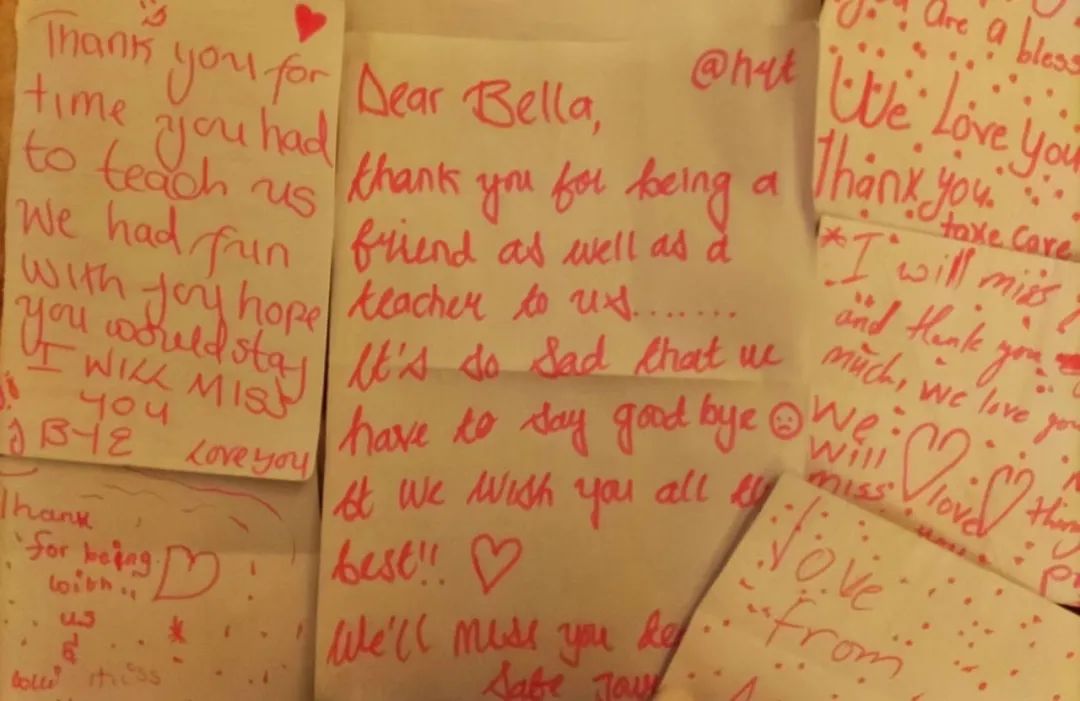 Thank you for
time you had
to teach us
We had fun
with joy hope
you would stay
I WILL MISS
YOU
B-YE Love you
Thank
for being
with
us
miss
Dear Bella,
thank you for being a
friend as well as a
teacher to us.......
It's so sad that we
have to say good bye
we wish you all
best!!
We'll miss you
Safe
you are a bless
We Love You
Thank you.
take care
*I will miss
and thank you
much, we love you
We
will
miss love
Love
from